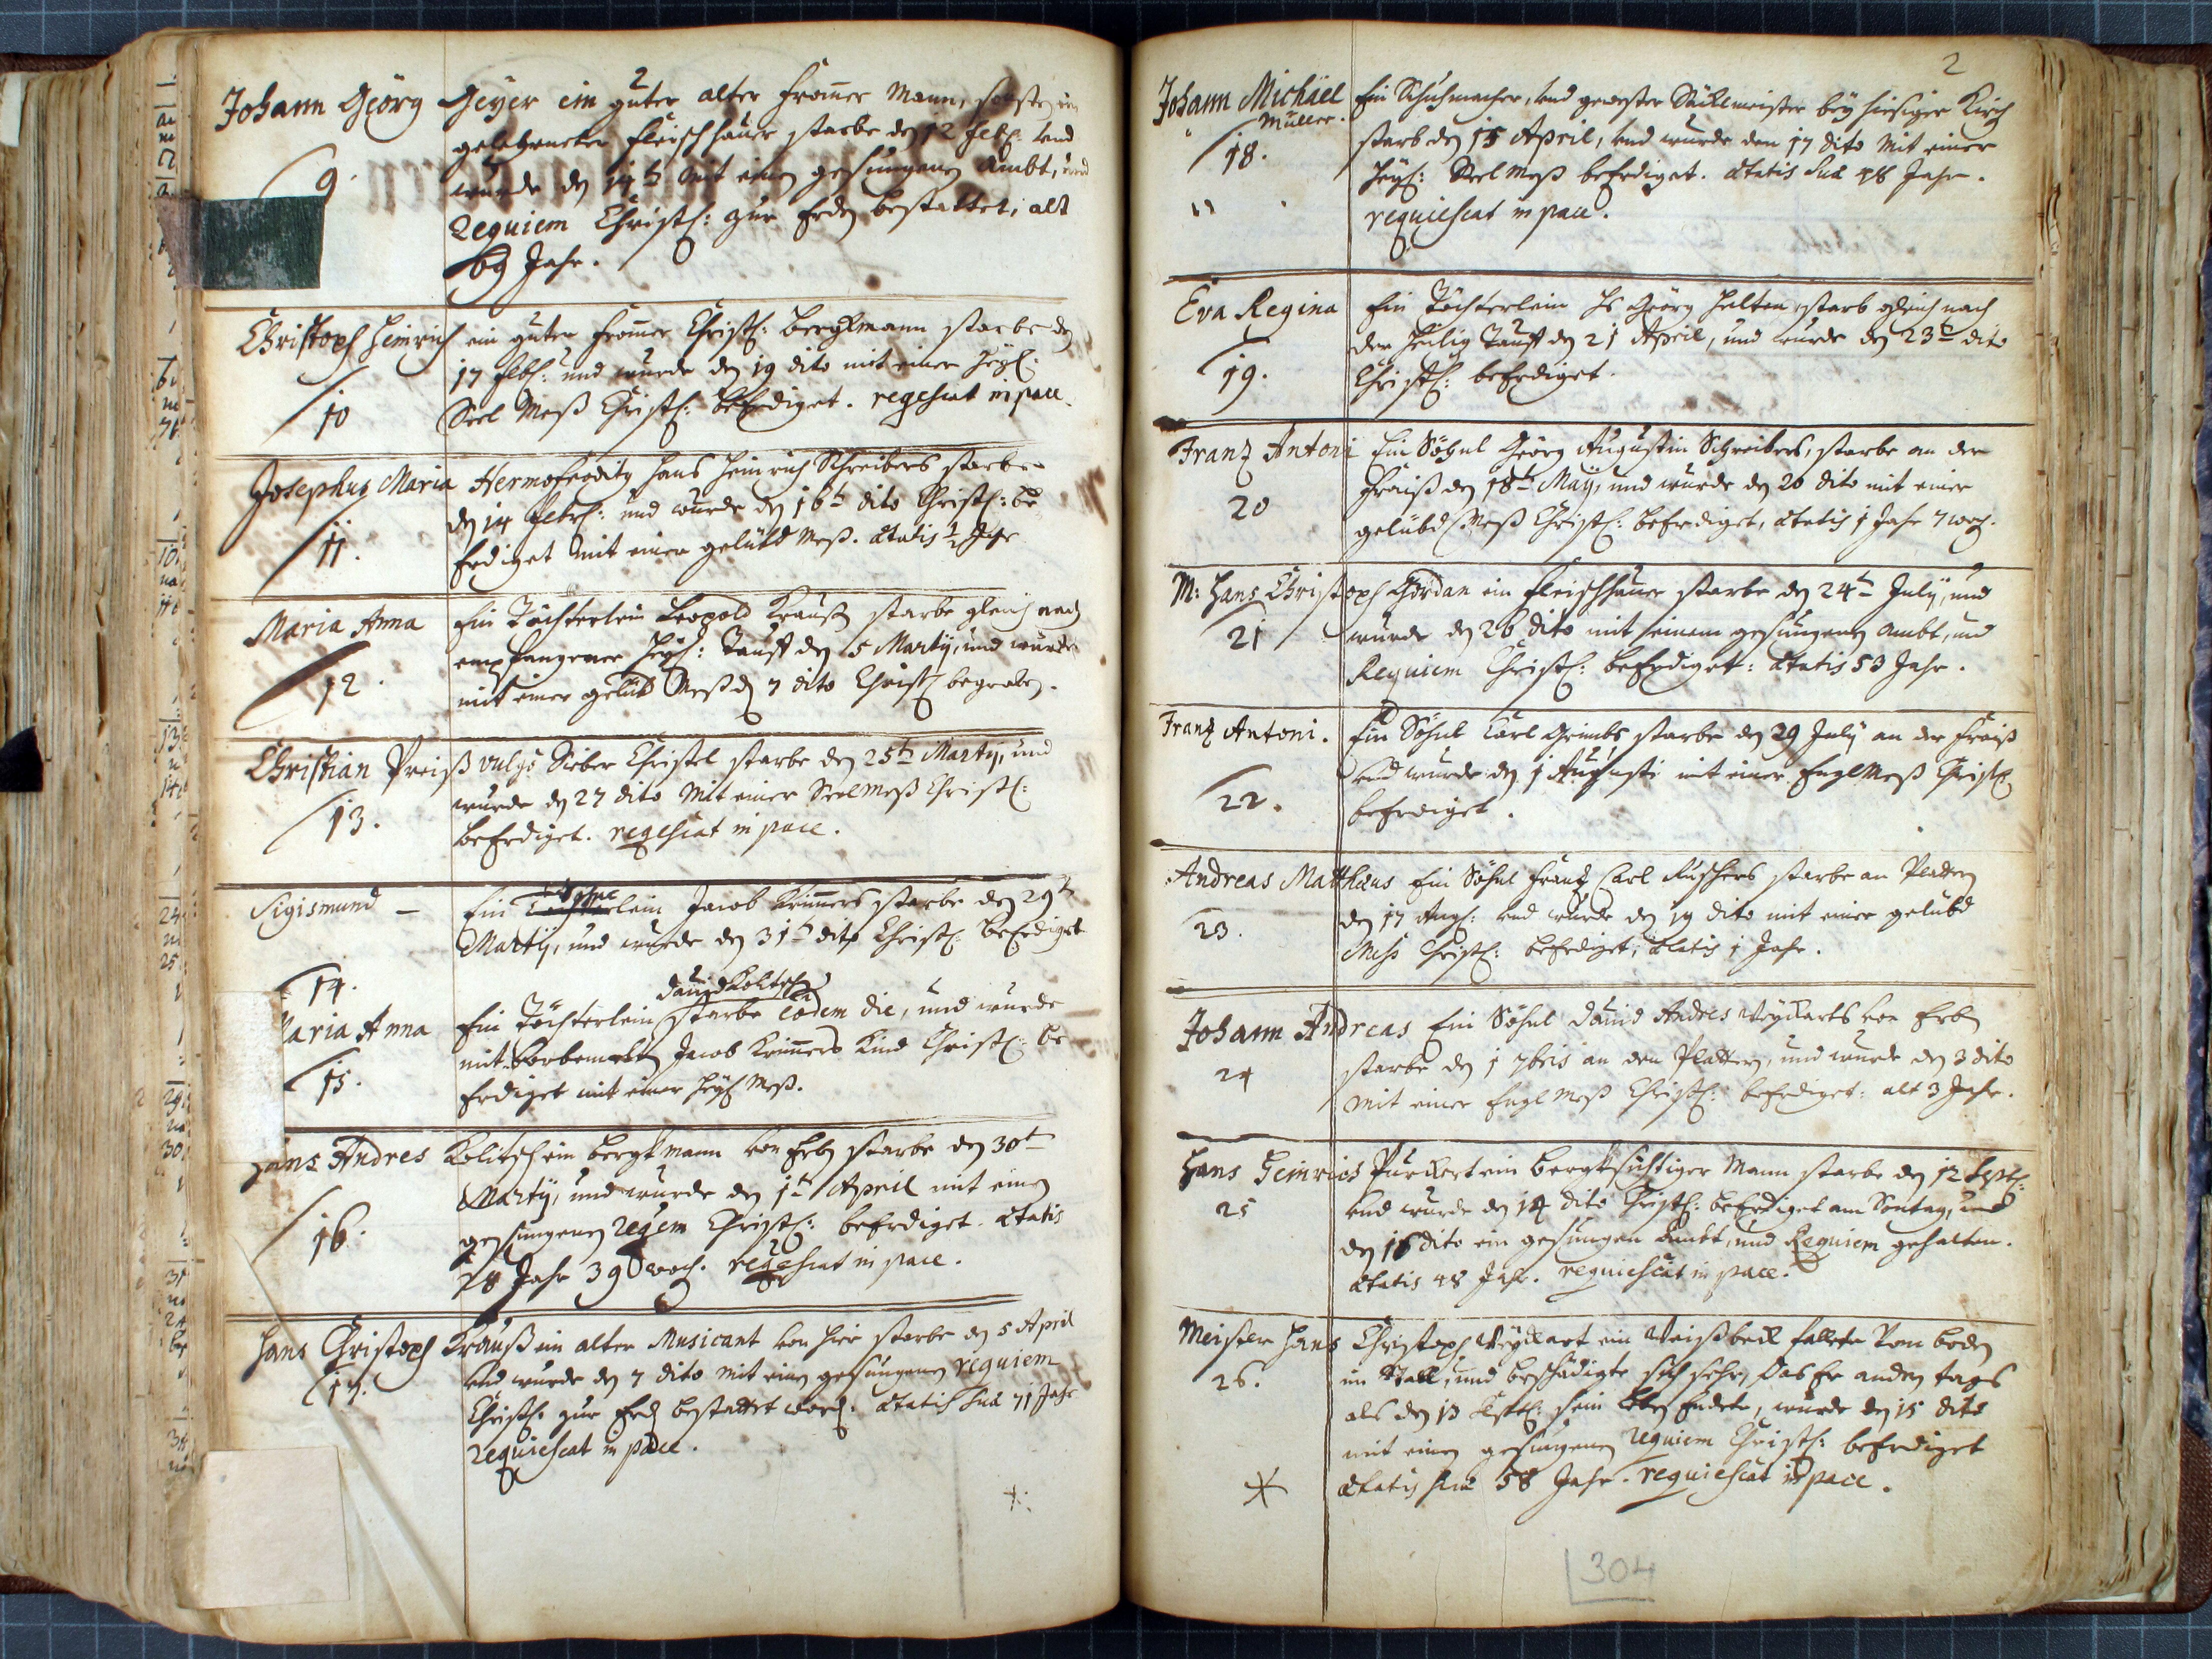 Johann Georg Geyer ein guter alter fromer Mann, sonsten ein
gelehrneter Fleischhauer starbe den 12 Feb: und
9.
wurde den 14t mit einen gesungenen Ambt, und
Requiem Christl: zur Erden bestattet, alt
69 Jahr.
Christoph Heinrich ein guter fromer Christl: Bergkmann starbe den
17 Feb: und wurde den 19 dito mit einer heyl:
10
Seel Meß Christl: beErdiget. reqescat in pace.
Josephus Maria Hermofrodity Hans Heinrich Schreibers starbe
den 14 Febr: und wurde den 16t dito Christl: be
11.
Erdiget mit einer gelübd Meß. Ætatis 1/2 Jahr
Maria Anna Ein Töchterlein Leopold Krauß starbe gleich nach
empfangener heyl: Tauff den 5 Martij, und wurde
12.
mit einer gelübd Meß den 7 dito Christl begraben.
Christian Preiß vulgo Sieber Christel starbe den 25t Martij, und
wurde den 27 dito mit einer Seel Meß Christl:
13.
beErdiget. reqescat in pace.
Sigismund – Ein Töchterlein Jacob Krimers starbe den 29t
Martij, und wurde den 31t dito Christl: beErdiget
14.
David Kolitsch
Maria Anna Ein Töchterlein starbe eodem die, und wurde
mit vorbemelten Jacob Krimers Kind Christl: be
15.
Erdiget mit einer heyl Meß.
Hans Andres Kolitsch ein Bergkmann von hier starbe den 30t
Martij, und wurde den 1t April mit einen
16.
gesungenen Reqem Christl: beErdiget. Ætatis
28 Jahr 39 woch. reqescat in pace.
Hans Christoph Krauß ein alter Musicant von hier starbe den 5 April
und wurde den 7 dito mit einen gesungenen requiem
17.
Christl: zur Erd bestattet word: Ætatis suæ 71 Jahr
requiescat in pace.
2
Johann Michäel Ein Schuhmacher, und gewester Säcklmeister bey hiesiger Kirch
Müller.
18.
starb den 15 April, und wurde den 17 dito mit einer
heyl: Seel Meß beErdiget. Ætatis suæ 48 Jahr.
requiescat in pace.
Eva Regina Ein Töchterlein Hs Georg Halter, starb gleich nach
der Heilig Tauff den 21 April, und wurde den 23t dito
19.
Christl: beErdiget.
Franz Antoni Ein Söhnl Georg Augustin Schreibers, starbe an der
20
Fraiß den 18t Maij, und wurde den 20 dito mit einer
gelübd Meß Christl: beErdiget, Ætatis 1 Jahr 7 woch.
M: Hans Christoph Gordan ein Fleischhauer starbe den 24t Julij, und
21
wurde den 26 dito mit einem gesungenen Ambt, und
Requiem Christl: beErdiget: Ætatis 53 Jahr.
Franz Antoni. Ein Söhnl Carl Grimbs starbe den 29 Julij an der Fraiß
und wurde den 1 Augusti mit einer Engl Meß Christl
22.
beErdiget.
Andreas Matthæus Ein Söhnl Frantz Carl Rischers starbe an Platern
23.
den 17 Aug: und wurde den 19 dito mit einer gelübd
Meß Christl: beErdiget, Ætatis 1 Jahr.
Johann Andreas Ein Söhnl David Andres Weykarts von hier
24
starbe den 1 7bris an den Plattern, und wurde den 3 dito
mit einer Engl Meß Christl: beErdiget: alt 3 Jahr.
Hans Heinrich Purckert ein bergksichtiger Mann starbe den 12 Sept:
25
und wurde den 14 dito Christl: beErdiget am Sontag, und
den 16 dito ein gesungen Ambt, und Requiem gehalten.
Ætatis 48 Jahr. requiescat in pace.
Meister Hans Christoph Weykart ein Weißbeck fallete vom boden
26.
im Stall, und beschädigte sich sehr, das Er anden tags
als den 13 Sept: sein leben Endete, wurde den 15 dito
mit einen gesungenen requiem Christl: beErdiget
Ætatis suæ 58 Jahr. requiescat in pace.
304